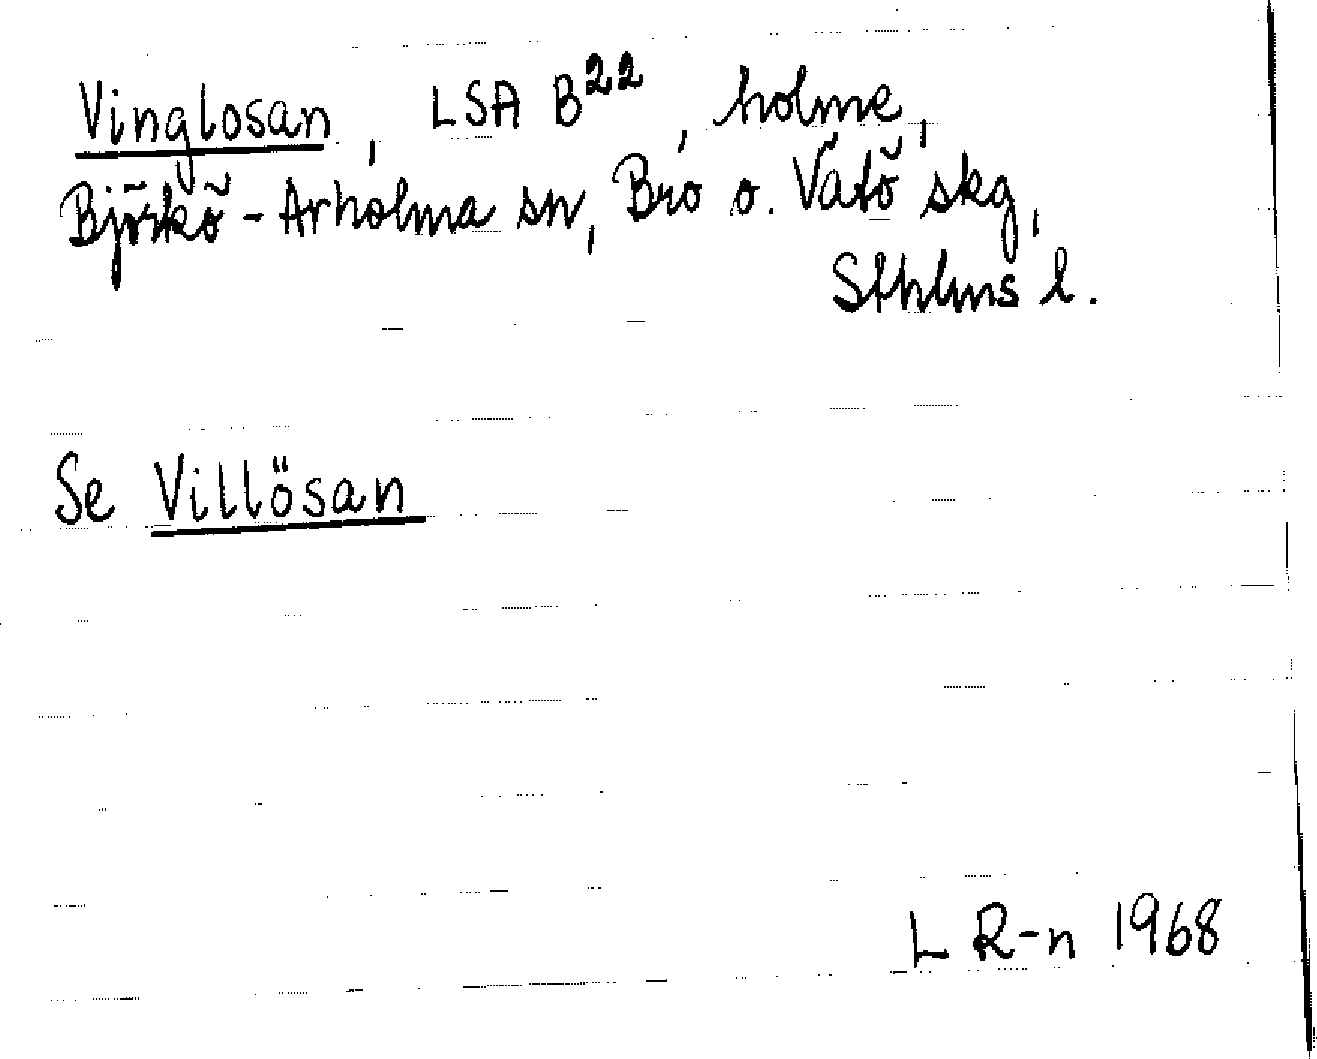 Vinglosan, LSA B²², holme,
Björkö-Arholma sn, Bro o. Vätö skg,
Sthlms l.
Se Villösan
L R-n 1968